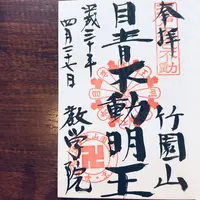 奉拝
不動
竹園山
目青不動明王
平成三十年
教学院
四月
日